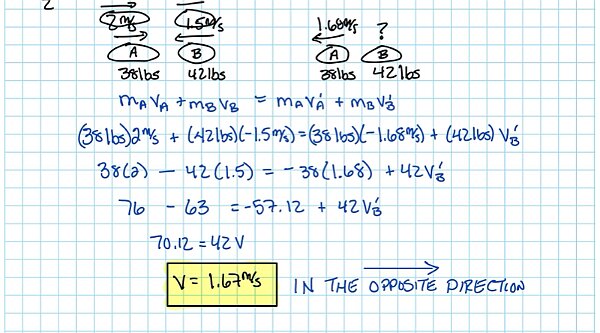 2
2m/s 1.5m/s 1.68m/s ?
A B A B
38lbs 42lbs 38lbs 42lbs
mAVA + mBVB = mAVA' + mBVB'
(38lbs)2m/s + (42lbs)(-1.5m/s) = (38lbs)(-1.68m/s) + (42lbs) VB'
38(2) - 42(1.5) = -38(1.68) + 42VB'
76 - 63 = -57.12 + 42VB'
70.12 = 42V
V = 1.67m/s IN THE OPPOSITE DIRECTION